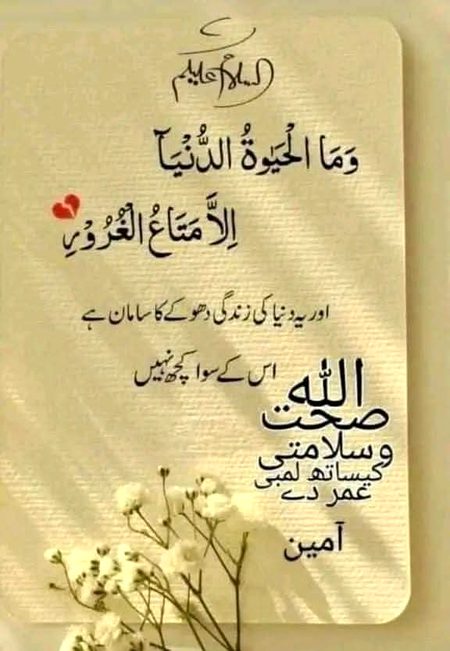 السلام علیکم
وَمَا الْحَيٰوةُ الدُّنْيَآ
اِلَّا مَتَاعُ الْغُرُوْرِ
اور یہ دنیا کی زندگی دھوکے کا سامان ہے
اس کے سوا کچھ نہیں
اللہ
صحت
وسلامتی
کیساتھ لمبی
عمر دے
آمین